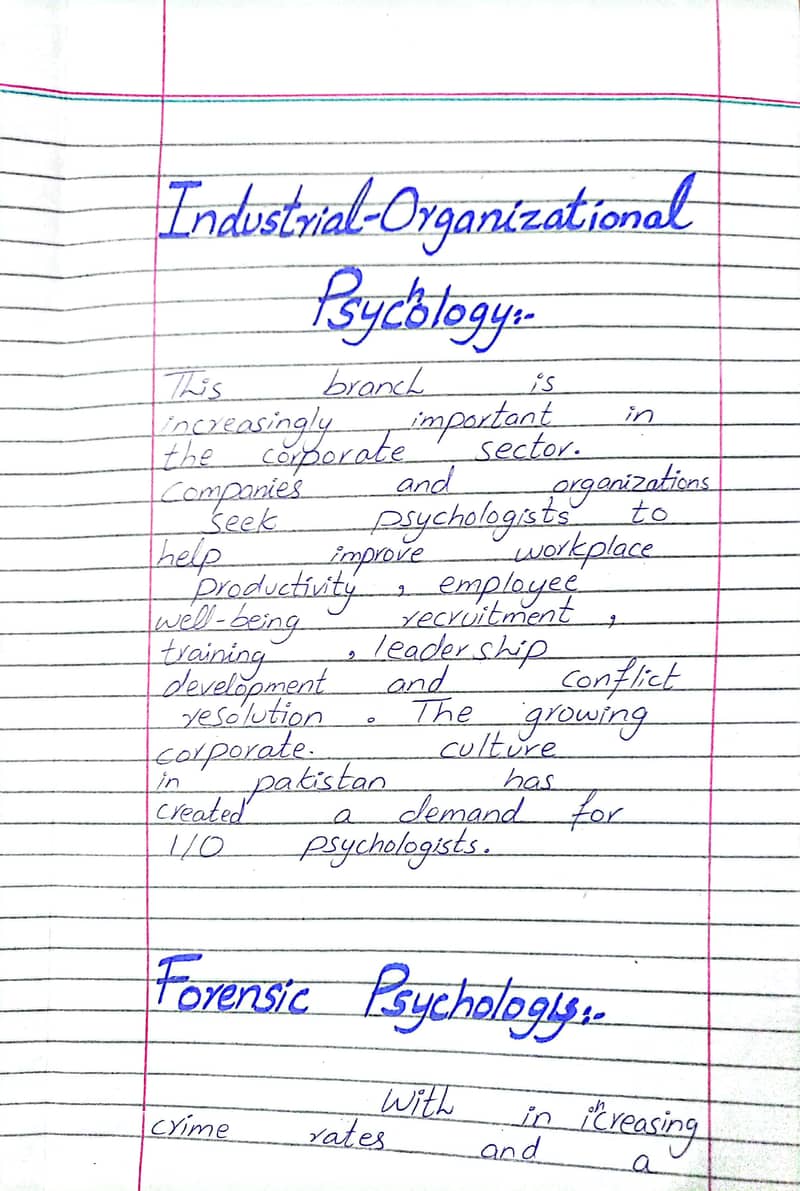 Industrial-Organizational
Psychology:-
This branch is
increasingly important in
the corporate sector.
companies and organizations
seek psychologists to
help improve workplace
productivity , employee
well-being recruitment ,
training , leadership
development and conflict
resolution . The growing
corporate. culture
in pakistan has
created a demand for
I/O psychologists.
Forensic Psychology:-
With in increasing
crime rates and a